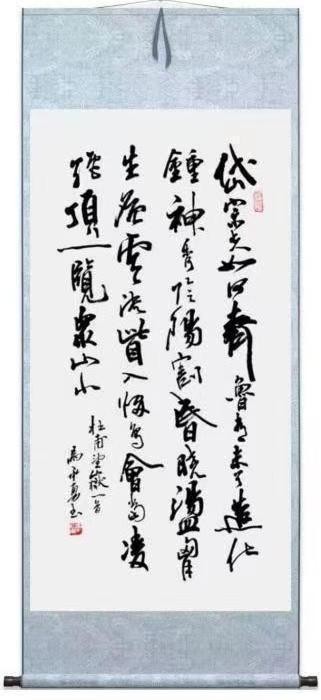 岱宗夫如何齊魯青未了造化
鍾神秀陰陽割昏曉盪胸
生層雲決眥入歸鳥會當凌
絕頂一覽眾山小
杜甫望嶽一首
書